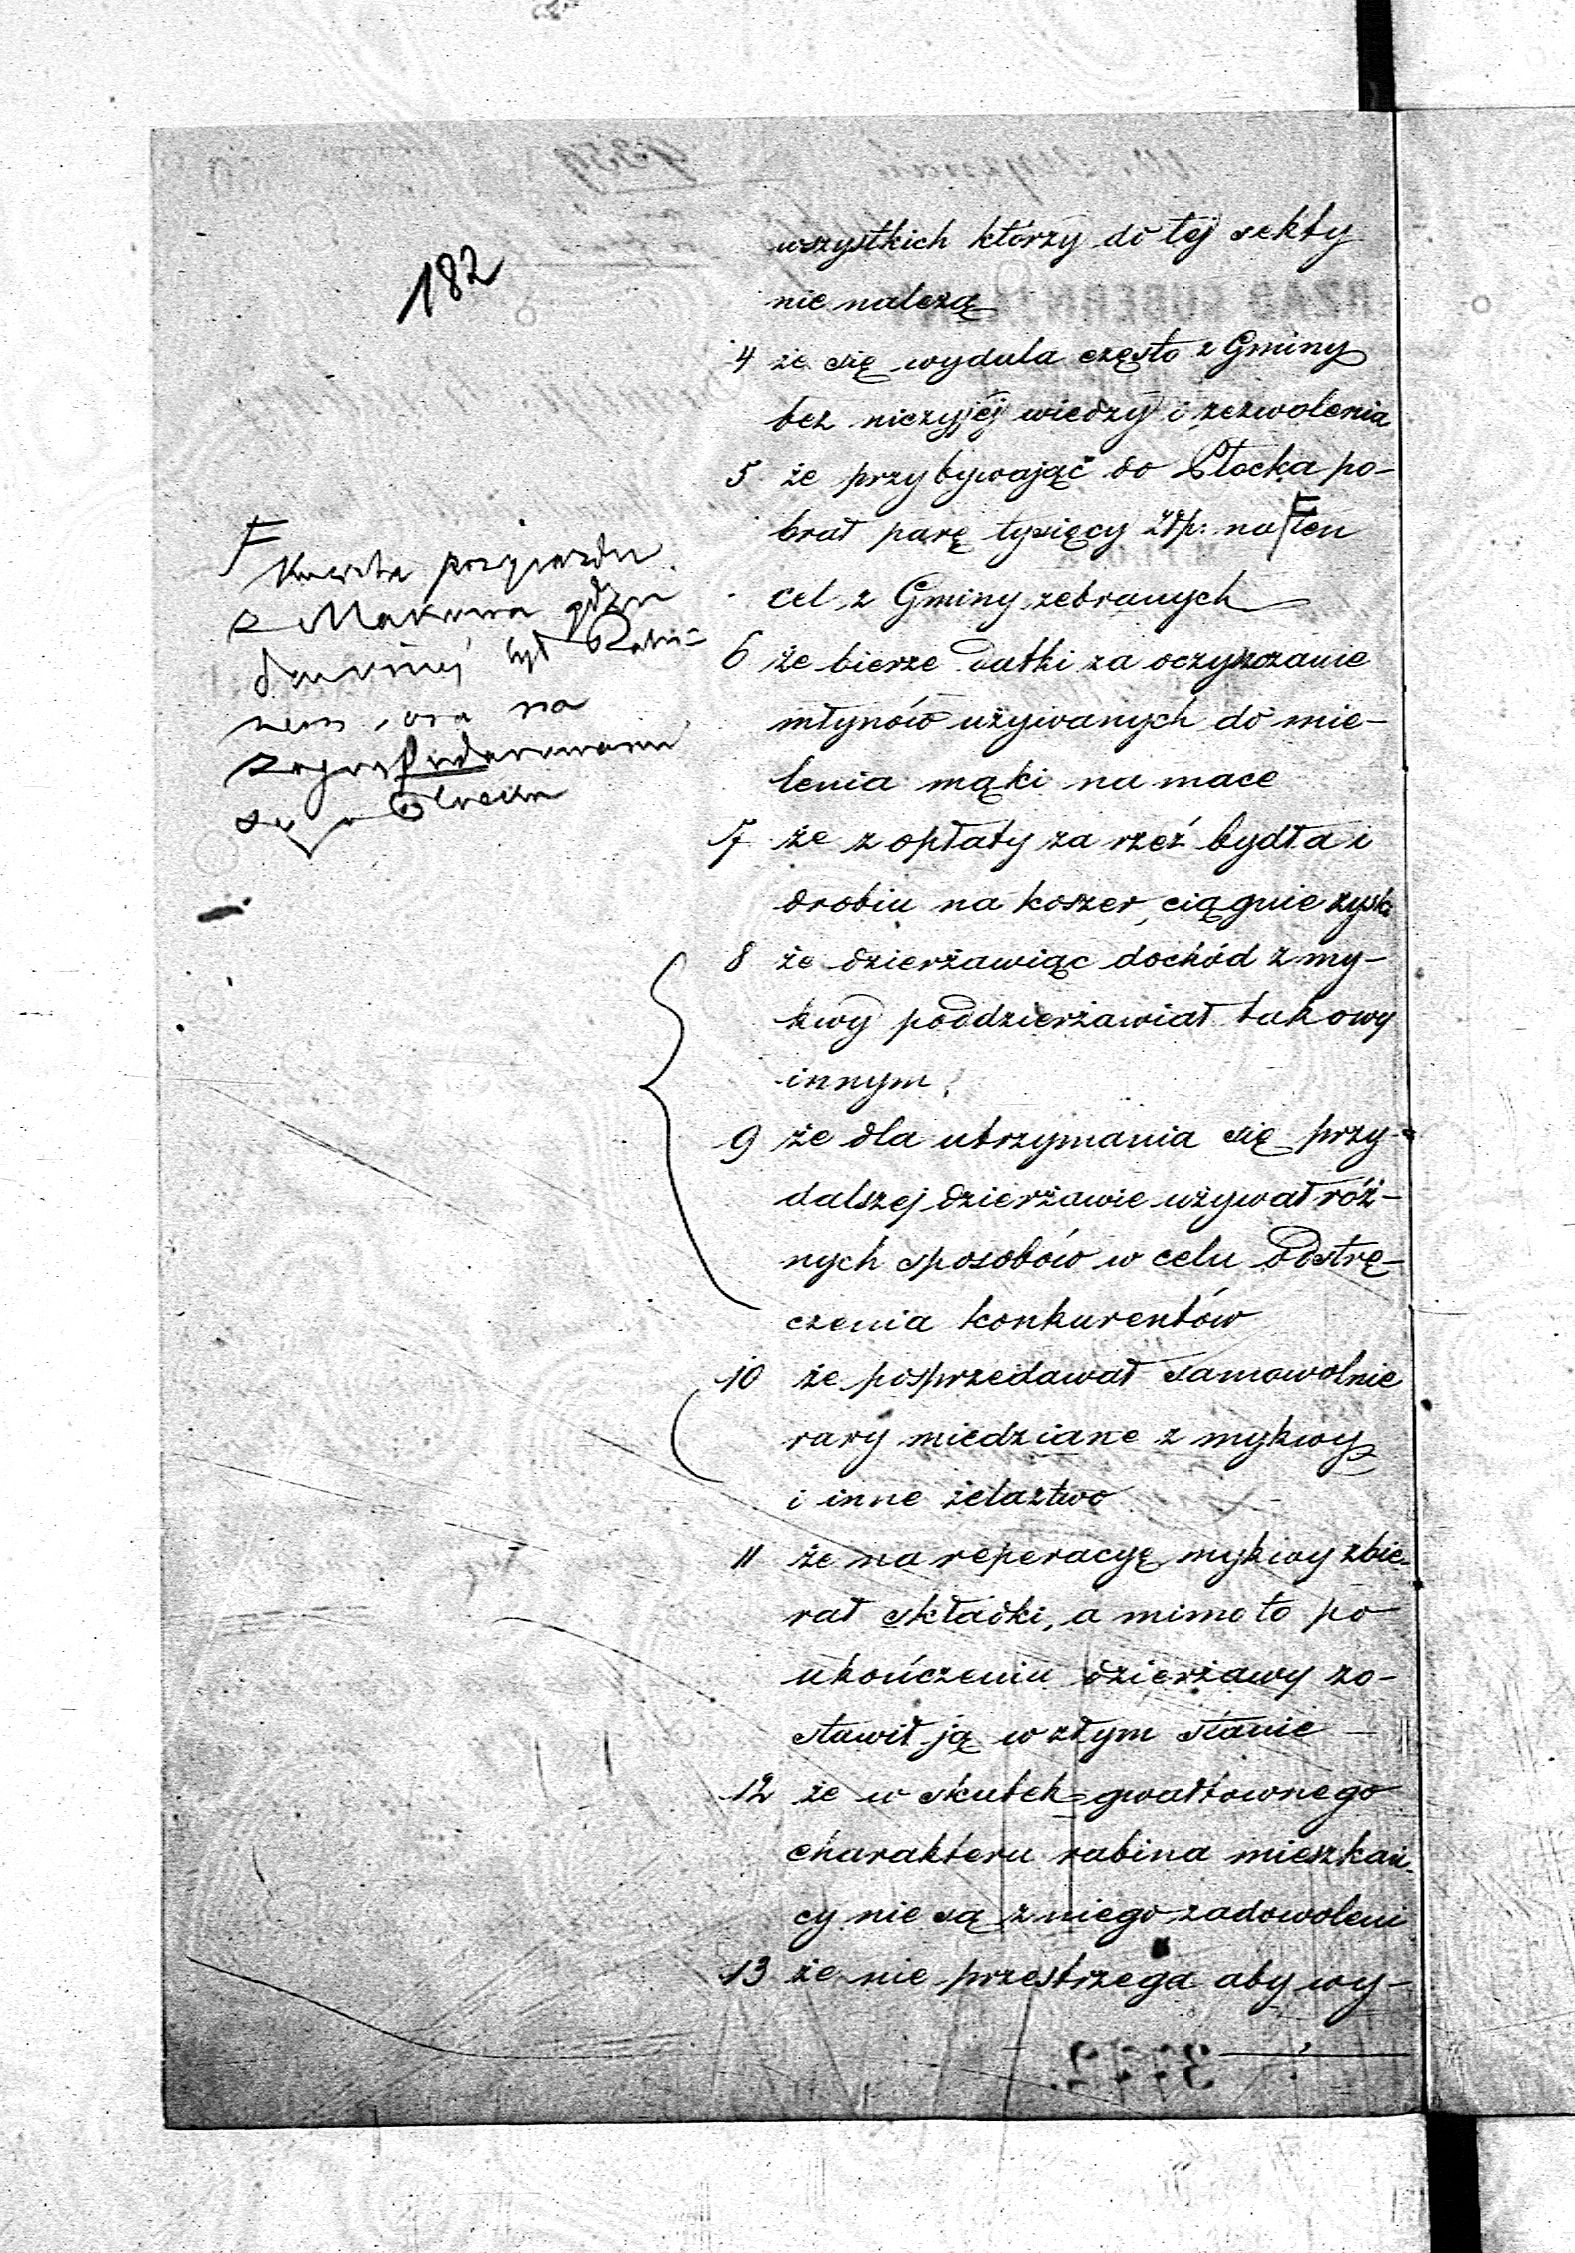 182
wszystkich którzy do tej sekty
nie należą
4 że się wydala często z Gminy
bez niczyjej wiedzy i zezwolenia
5 że przybywając do Płocka po-
brał parę tysięcy złp: na F ten
cel z Gminy zebranych
6 że bierze datki za oczyszczanie
młynów używanych do mie-
lenia mąki na mace
7 że z opłaty za rzeź bydła i
drobiu na koszer, ciągnie zysk
8 że dzierżawiąc dochód z my-
kwy poddzierżawiał takowy
innym,
9 że dla utrzymania się przy
dalszej dzierżawie używał róż-
nych sposobów w celu odstrę-
czenia konkurentów
10 że posprzedawał samowolnie
rary miedziane z mykwy
i inne żelaztwo
11 że na reperacyę mykwy zbie-
rał składki, a mimo to po
ukończeniu dzierżawy zo-
stawił ją w złym stanie
12 że w skutek gwałtownego
charakteru rabina mieszkań-
cy nie są z niego zadowoleni
13 że nie przestrzega aby wy-
F
przyjazdu
z Makowa gdzie
dawniej był Rabi=
nem, na